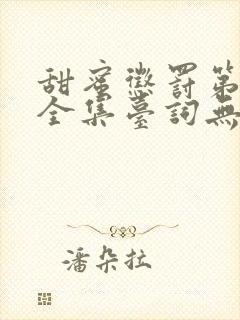 甜蜜懲罰第
全集臺詞無
潘朵拉